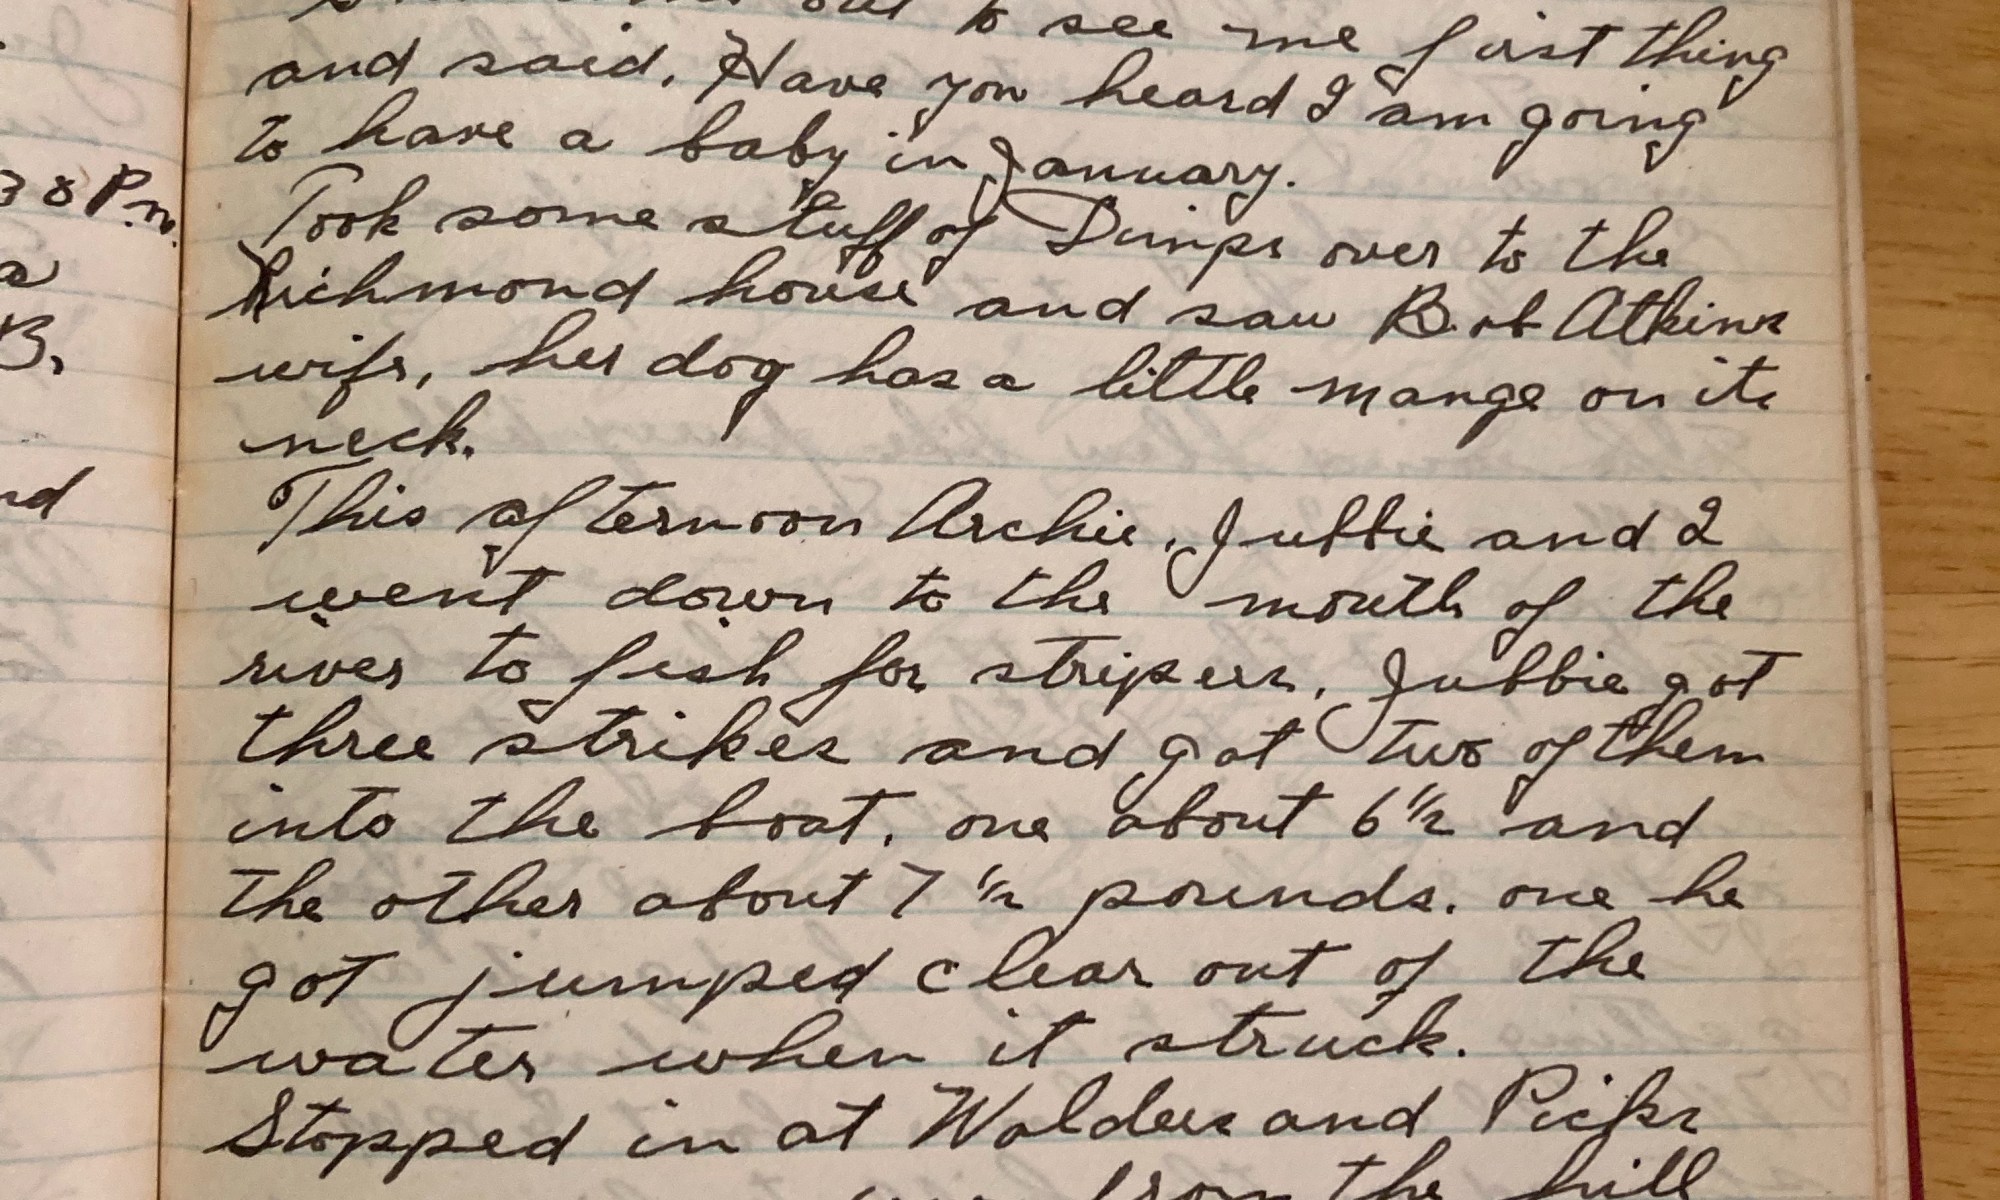 out to see me first thing
and said, Have you heard I am going
to have a baby in January.
Took some stuff of Dimps over to the
Richmond house and saw Bob Atkins
wife, her dog has a little mange on its
neck.
This afternoon Archie, Jubbie and I
went down to the mouth of the
river to fish for stripers. Jubbie got
three strikes and got two of them
into the boat, one about 6 1/2 and
the other about 7 1/2 pounds. one he
got jumped clear out of the
water when it struck.
Stopped in at Walders and
from the hill
38 P.m.
a
B,
nd